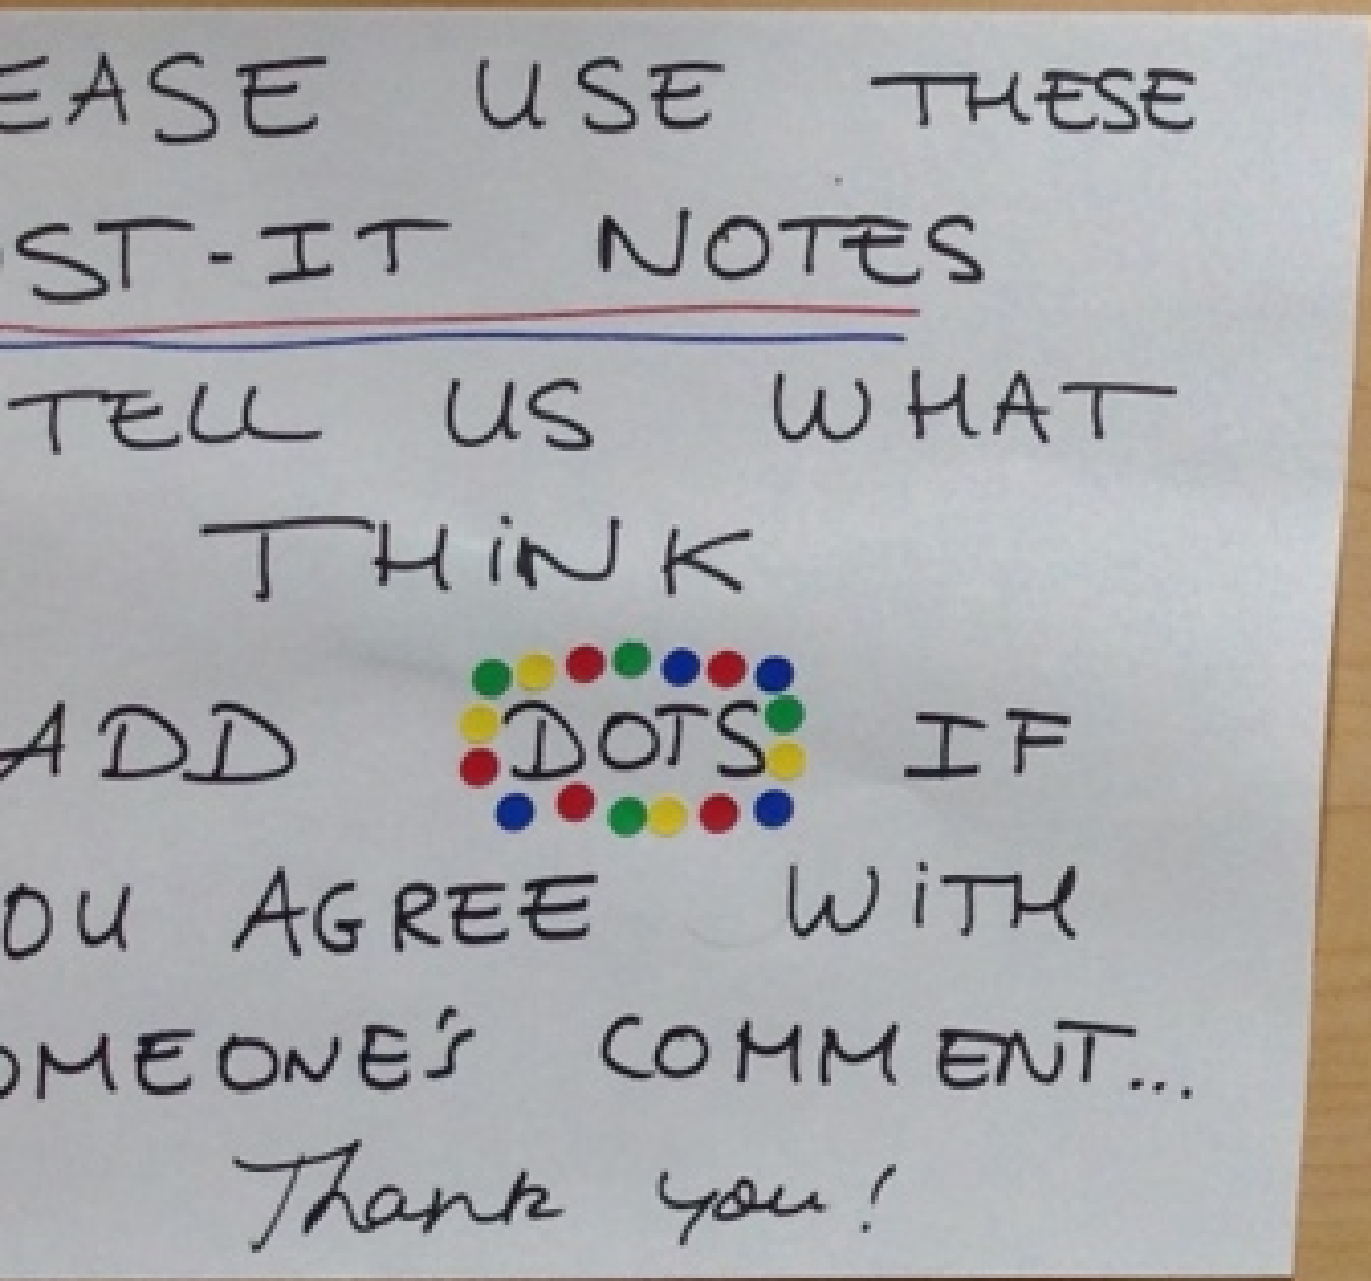 EASE USE THESE
OST-IT NOTES
TELL US WHAT
THINK
ADD DOTS IF
OU AGREE WITH
OMEONE'S COMMENT...
Thank you!